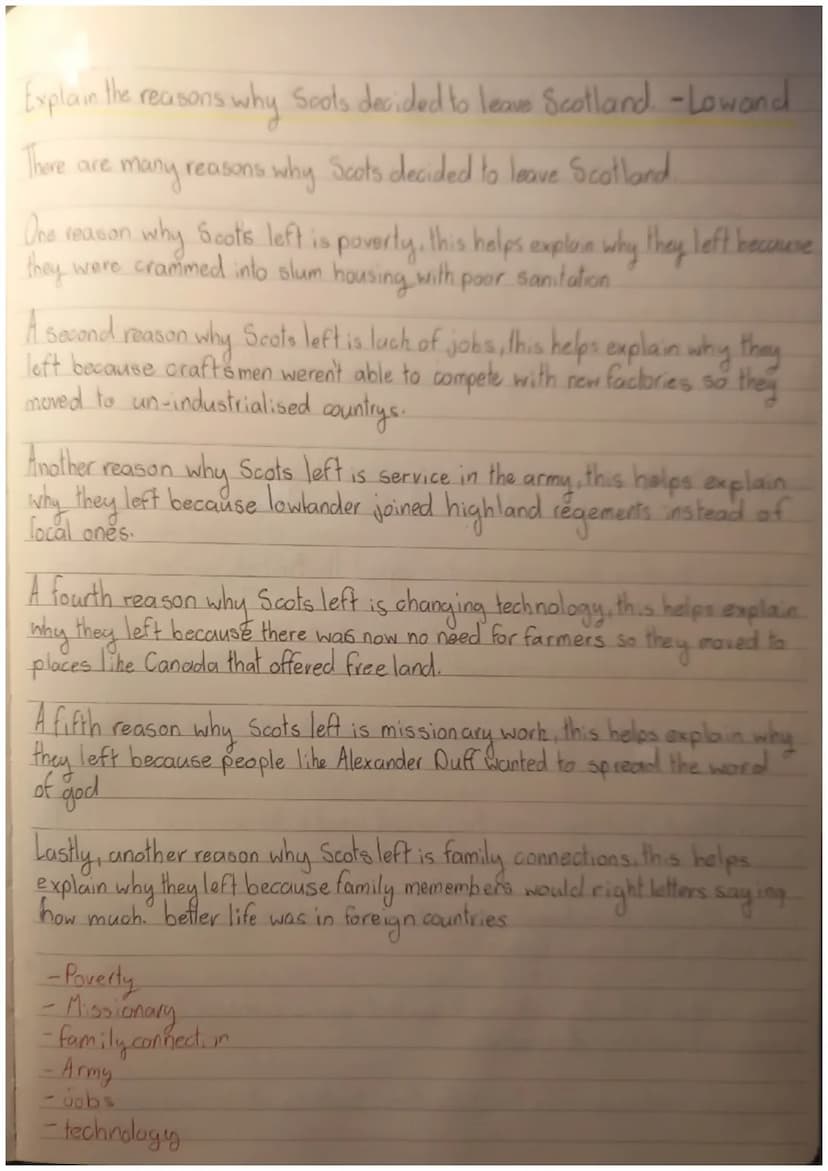 Explain the reasons why Scots decided to leave Scotland. - Lowand
There are many reasons why Scots decided to leave Scotland.
One reason why Scots left is poverty, this helps explain why they left because
they were crammed into slum housing with poor sanitation
A second reason why Scots left is lack of jobs, this helps explain why they
left because craftsmen weren't able to compete with new factories so they
moved to un-industrialised countrys.
Another reason why Scots left is service in the army, this helps explain
why they left because lowlander joined highland regements instead of
local ones.
A fourth reason why Scots left is changing technology, this helps explain
why they left because there was now no need for farmers so they moved to
places like Canada that offered free land.
A fifth reason why Scots left is missionary work, this helps explain why
they left because people like Alexander Duff wanted to spread the word
of god
Lastly, another reason why Scots left is family connections, this helps
explain why they left because family memembers would right letters saying
how much. better life was in foreign countries
- Poverty
- Missionary
- family connect.in
- Army
- jobs
- technology